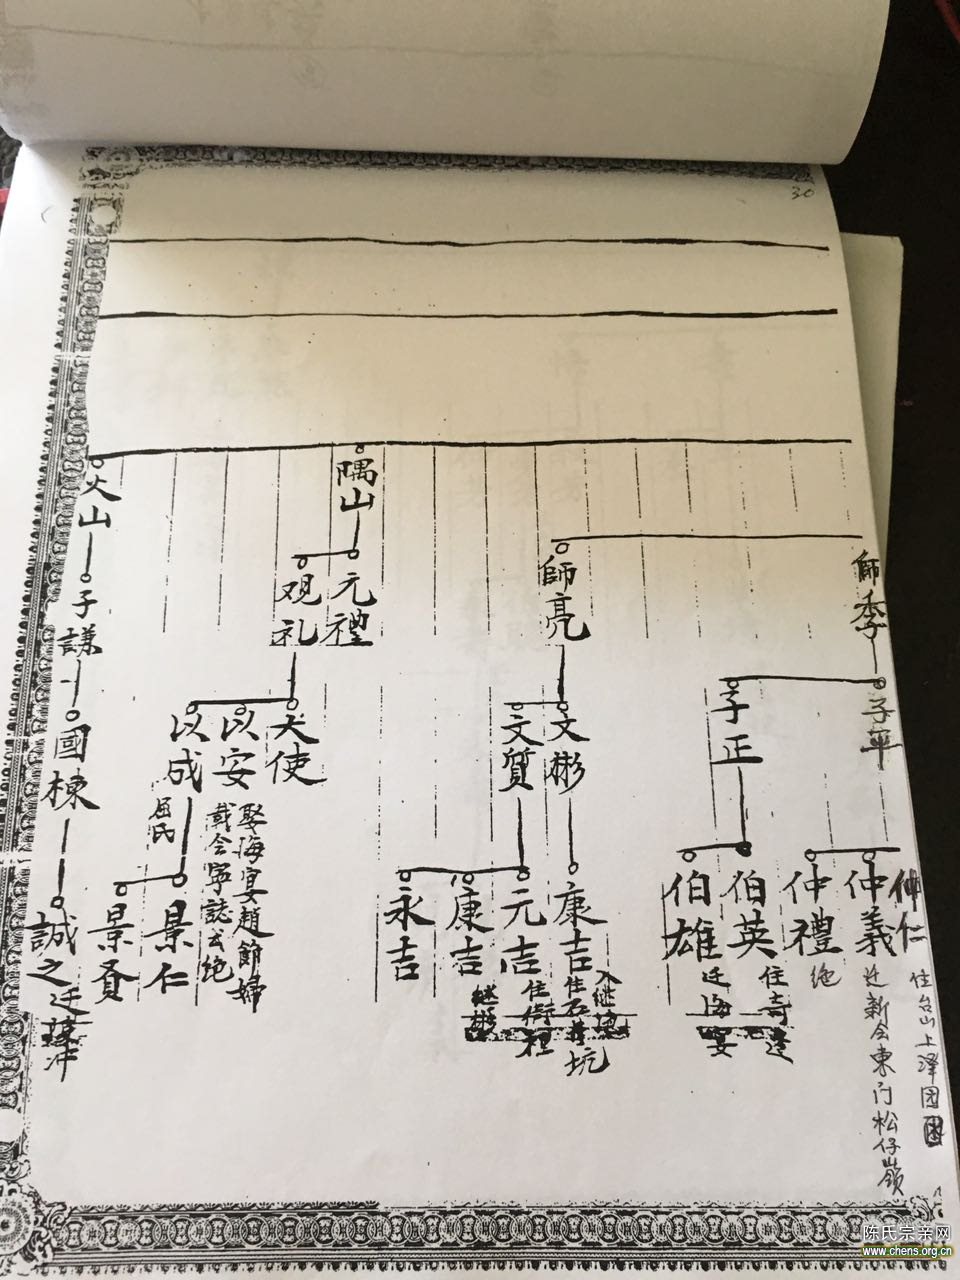 30
師季
子平
仲仁
住台山上澤
仲義
迁新会東门松仔嶺
仲禮
绝
子正
伯英
住
伯雄
迁海宴
師亮
文彬
康吉
入继
住石
坑
文質
元吉
住
康吉
继彬
永吉
隅山
元禮
观礼
大使
以安
娶海宴趙節婦
載会寧誌
绝
以成
屈氏
景仁
景賁
火山
子謙
國棟
誠之
迁
冲
陈氏宗亲网
www.chens.org.cn